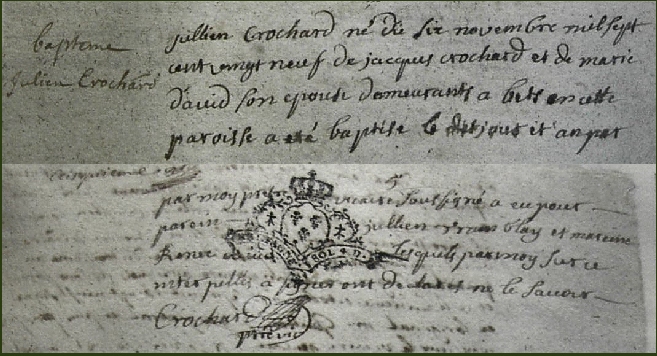 bapteme
Julien Crochard
jullien Crochard né du six novembre mil sept
cent vingt neuf de jacques crochard et de marie
david son epouse demeurants a bets en cette
paroisse a eté baptise le dit jour et an par
par moy vicaire soussigné a eu pour
parein jullien blay et mareine
Renee lesquels par moy sur ce
interpellés a signer ont declaré ne le savoir
Crochard